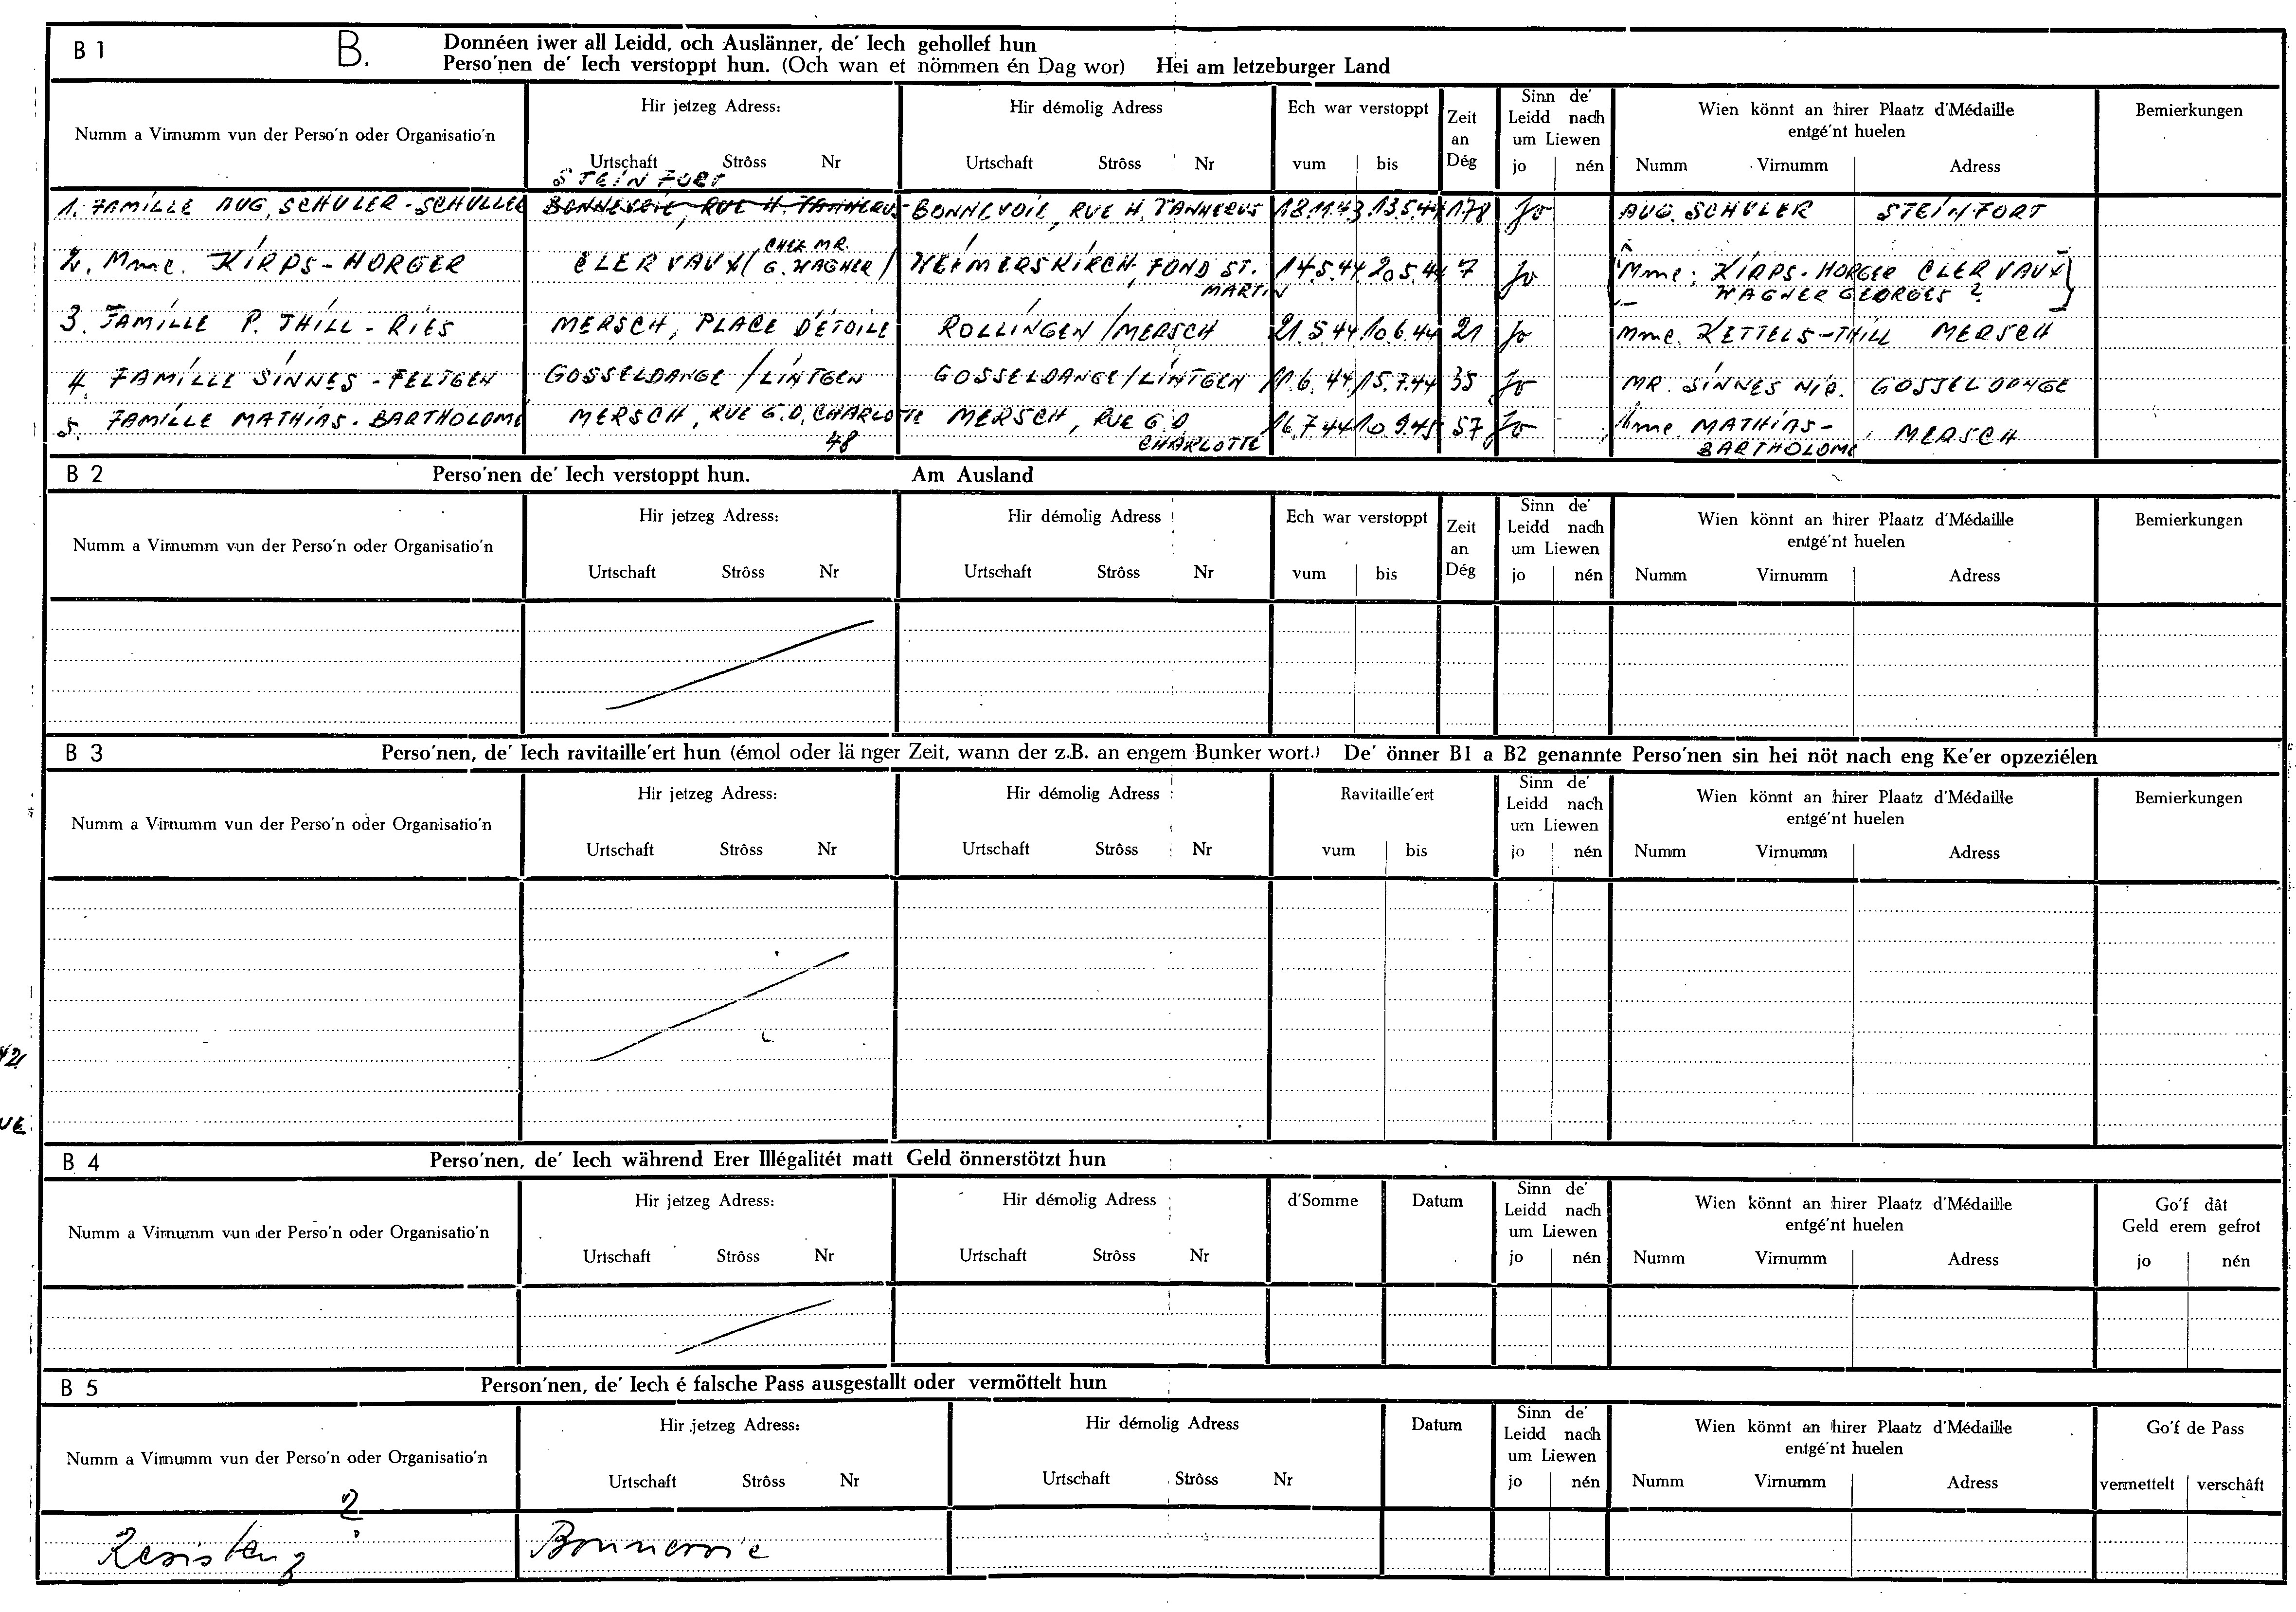 B 1 B. Donnéen iwer all Leidd, och Auslänner, de' Iech gehollef hun
Perso'nen de' Iech verstoppt hun. (Och wan et nömmen én Dag wor) Hei am letzeburger Land
Numm a Virnumm vun der Perso'n oder Organisatio'n
Hir jetzeg Adress:
Urtschaft Strôss Nr
Hir démolig Adress
Urtschaft Strôss Nr
Ech war verstoppt
vum bis
Zeit
an
Dég
Sinn de'
Leidd nach
um Liewen
jo nén
Wien könnt an hirer Plaatz d'Médaille
entgé'nt huelen
Numm Virnumm Adress
Bemierkungen
STEINFORT
1. FAMILLE AUG. SCHULER-SCHULLER BONNEVOIE, RUE H. TANNERUS BONNEVOIE, RUE H. TANNERUS 18.11.43 13.5.44 178 Jo AUG. SCHULER STEINFORT
2. Mme. KIRPS-HORGER CLERVAUX (CHEZ MR. G. WAGNER) WEIMERSKIRCH, FOND ST. MARTIN 14.5.44 20.5.44 7 Jo Mme: KIRPS-HORGER CLERVAUX
WAGNER GEORGES ?
3. FAMILLE P. THILL-RIES MERSCH, PLACE D'ÉTOILE ROLLINGEN/MERSCH 21.5.44 10.6.44 21 Jo Mme. KETTELS-THILL MERSCH
4. FAMILLE SINNES-FELTGEN GOSSELDANGE/LINTGEN GOSSELDANGE/LINTGEN 11.6.44 15.7.44 35 Jo MR. SINNES NIC. GOSSELDANGE
5. FAMILLE MATHIAS-BARTHOLOMÉ MERSCH, RUE G.D. CHARLOTTE 48 MERSCH, RUE G.D CHARLOTTE 16.7.44 10.9.45 57 Jo Mme. MATHIAS-BARTHOLOMÉ, MERSCH
B 2 Perso'nen de' Iech verstoppt hun. Am Ausland
Numm a Virnumm vun der Perso'n oder Organisatio'n
Hir jetzeg Adress:
Urtschaft Strôss Nr
Hir démolig Adress
Urtschaft Strôss Nr
Ech war verstoppt
vum bis
Zeit
an
Dég
Sinn de'
Leidd nach
um Liewen
jo nén
Wien könnt an hirer Plaatz d'Médaille
entgé'nt huelen
Numm Virnumm Adress
Bemierkungen
B 3 Perso'nen, de' Iech ravitaille'ert hun (émol oder länger Zeit, wann der z.B. an engem Bunker wort.) De' önner B1 a B2 genannte Perso'nen sin hei nöt nach eng Ke'er opzeziélen
Numm a Virnumm vun der Perso'n oder Organisatio'n
Hir jetzeg Adress:
Urtschaft Strôss Nr
Hir démolig Adress
Urtschaft Strôss Nr
Ravitaille'ert
vum bis
Sinn de'
Leidd nach
um Liewen
jo nén
Wien könnt an hirer Plaatz d'Médaille
entgé'nt huelen
Numm Virnumm Adress
Bemierkungen
B 4 Perso'nen, de' Iech während Erer Illégalitét matt Geld önnerstötzt hun
Numm a Virnumm vun der Perso'n oder Organisatio'n
Hir jetzeg Adress:
Urtschaft Strôss Nr
Hir démolig Adress
Urtschaft Strôss Nr
d'Somme
Datum
Sinn de'
Leidd nach
um Liewen
jo nén
Wien könnt an hirer Plaatz d'Médaille
entgé'nt huelen
Numm Virnumm Adress
Go'f dât
Geld erem gefrot
jo nén
B 5 Person'nen, de' Iech é falsche Pass ausgestallt oder vermöttelt hun
Numm a Virnumm vun der Perso'n oder Organisatio'n
Hir jetzeg Adress:
Urtschaft Strôss Nr
Hir démolig Adress
Urtschaft Strôss Nr
Datum
Sinn de'
Leidd nach
um Liewen
jo nén
Wien könnt an hirer Plaatz d'Médaille
entgé'nt huelen
Numm Virnumm Adress
Go'f de Pass
vermettelt verschâft
Resistenz ? Bonnevoie